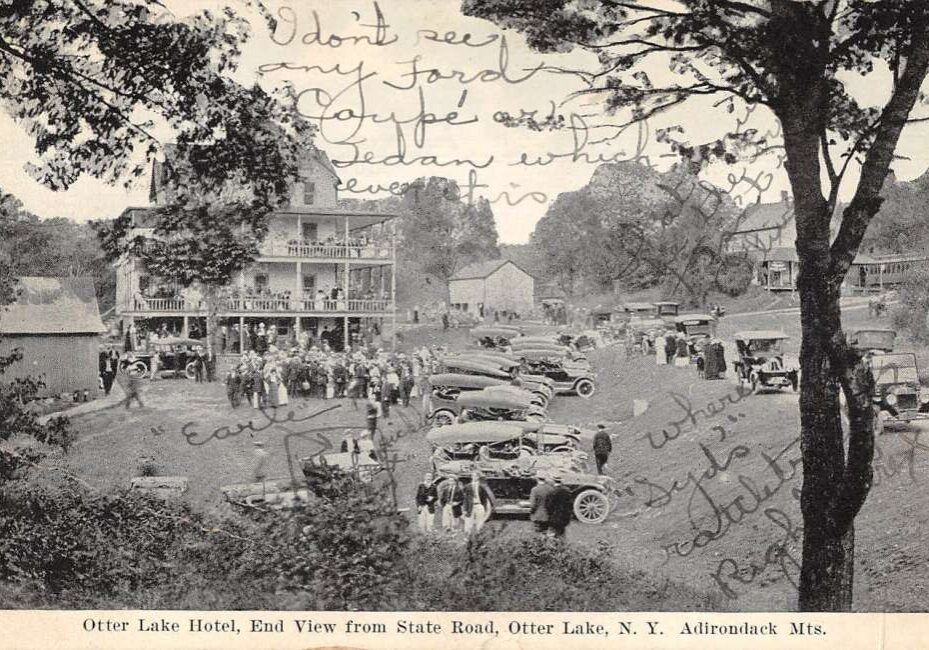 I don't see
any Ford
Coupé or
Sedan which
ever this
is
"Earle"
where
"Syd's"
rattletr
Right
Otter Lake Hotel, End View from State Road, Otter Lake, N. Y. Adirondack Mts.